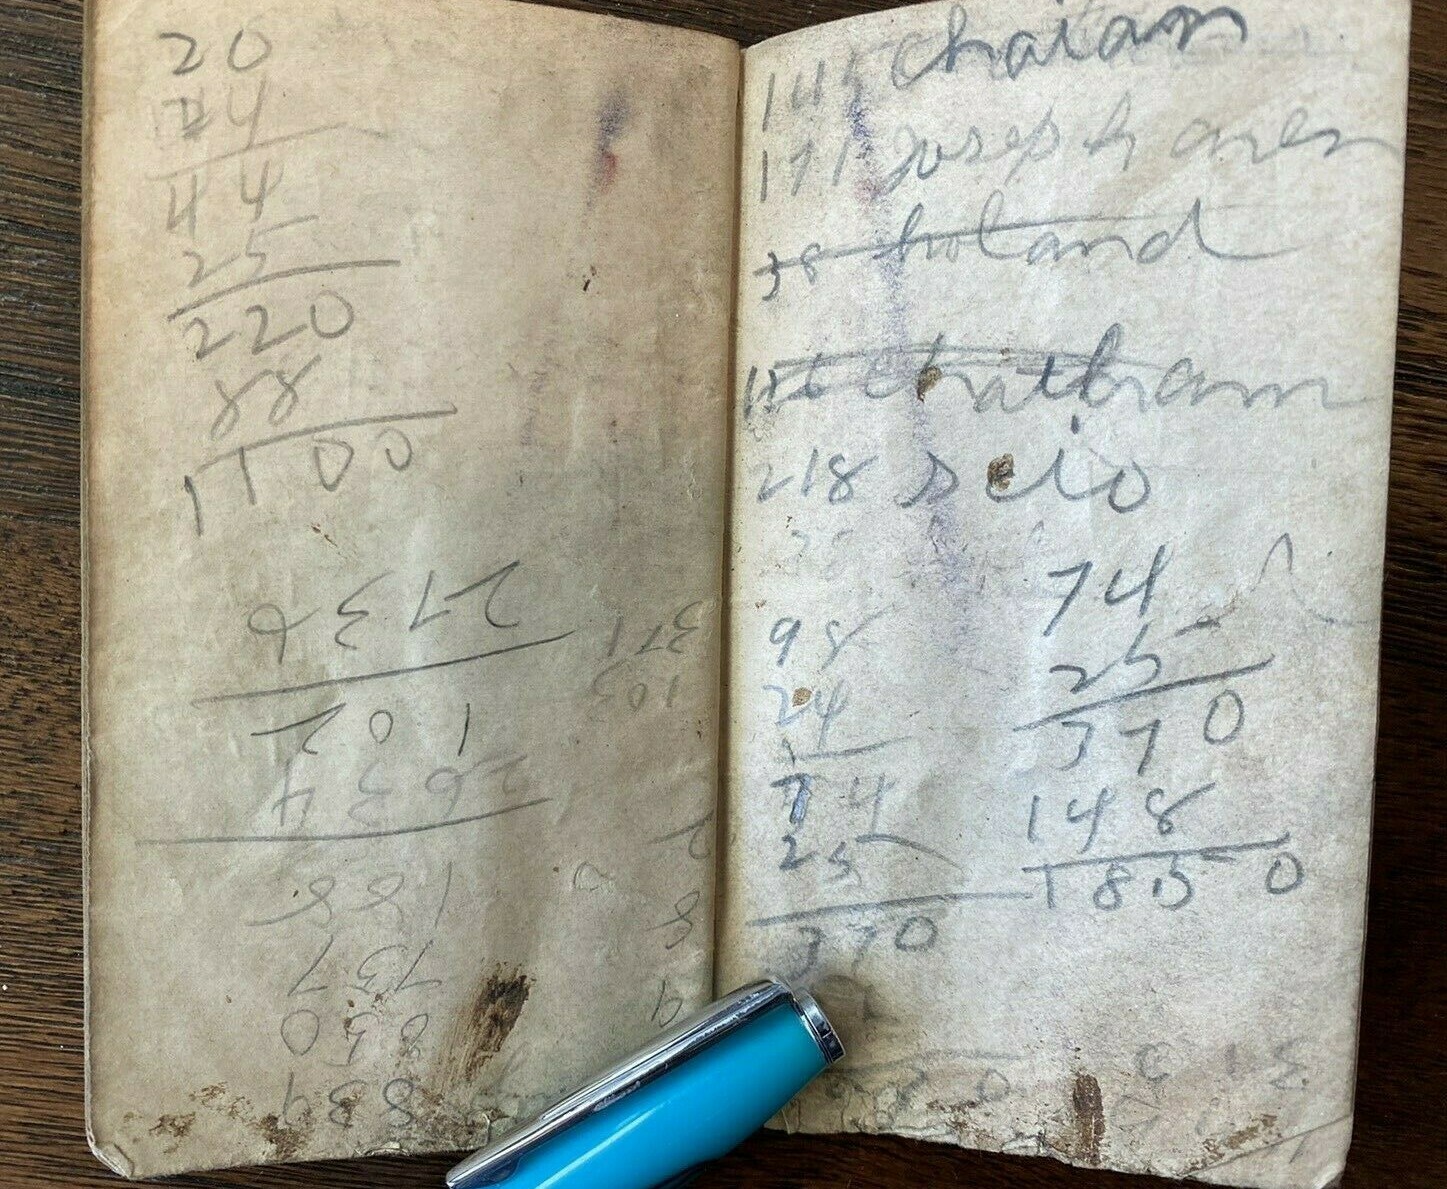 20
24
44
25
220
88
1100
839
850
737
188
2634
102
2736
103
371
2
8
9
145 Chatam
171 Joseph aven
38 holand
116 Chatham
218 scio
98
24
74
25
370
74
25
370
148
1850